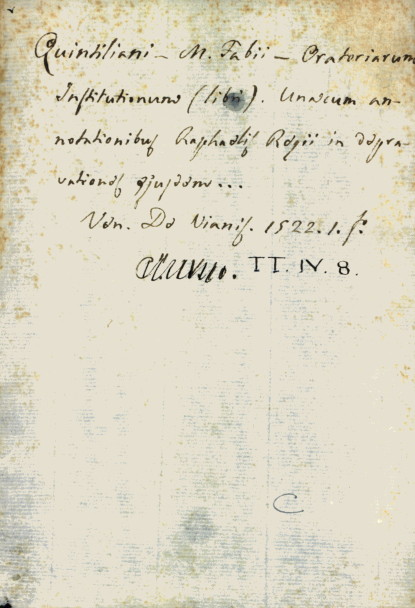 Quintiliani - M. Fabii - Oratoriarum
Institutionum (libri). Unacum an-
notationibus Raphaelis Regii in depra-
vationes ejusdem...
Ven. De Vianis. 1522. 1. f.
TT. IV. 8.
C